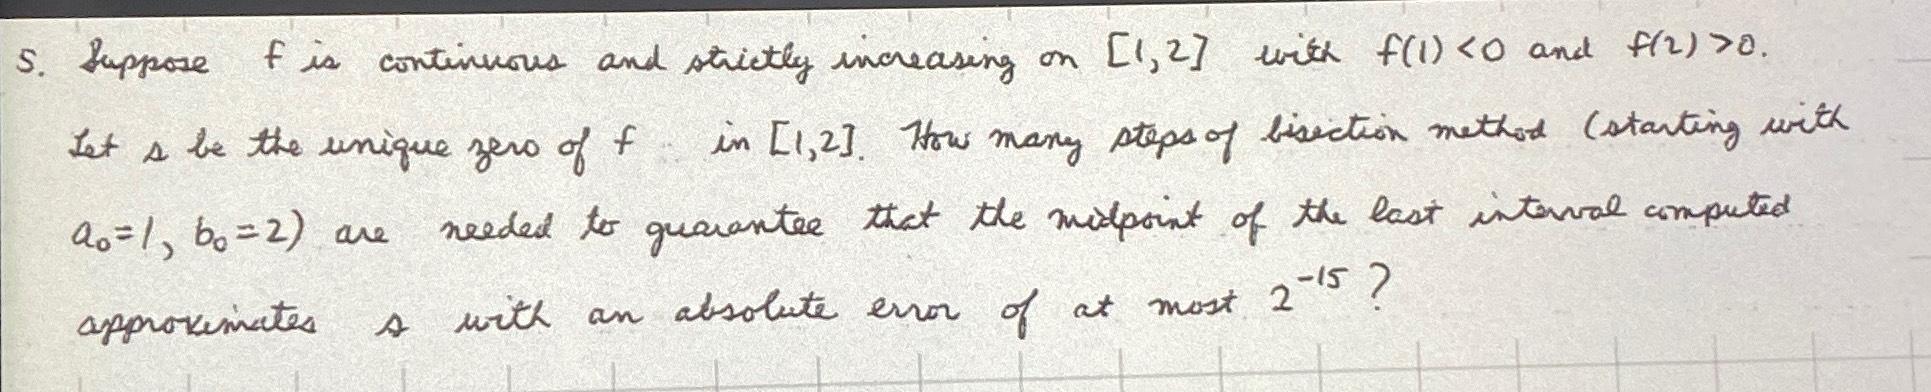 5. Suppose f is continuous and strictly increasing on [1,2] with f(1)<0 and f(2)>0.
Let s be the unique zero of f in [1,2]. How many steps of bisection method (starting with
a₀=1, b₀=2) are needed to guarantee that the midpoint of the last interval computed
approximates s with an absolute error of at most 2⁻¹⁵?